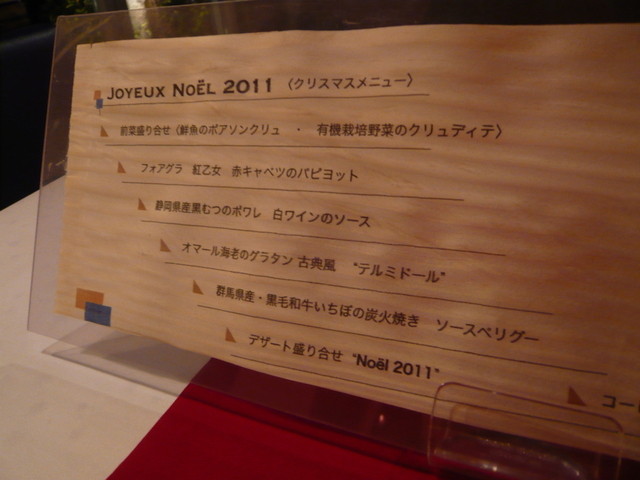 JOYEUX NOËL 2011 〈クリスマスメニュー〉
前菜盛り合せ〈鮮魚のポアソンクリュ ・ 有機栽培野菜のクリュディテ〉
フォアグラ 紅乙女 赤キャベツのパピヨット
静岡県産黒むつのポワレ 白ワインのソース
オマール海老のグラタン 古典風 "テルミドール"
群馬県産・黒毛和牛いちぼの炭火焼き ソースペリグー
デザート盛り合せ "Noël 2011"
コー